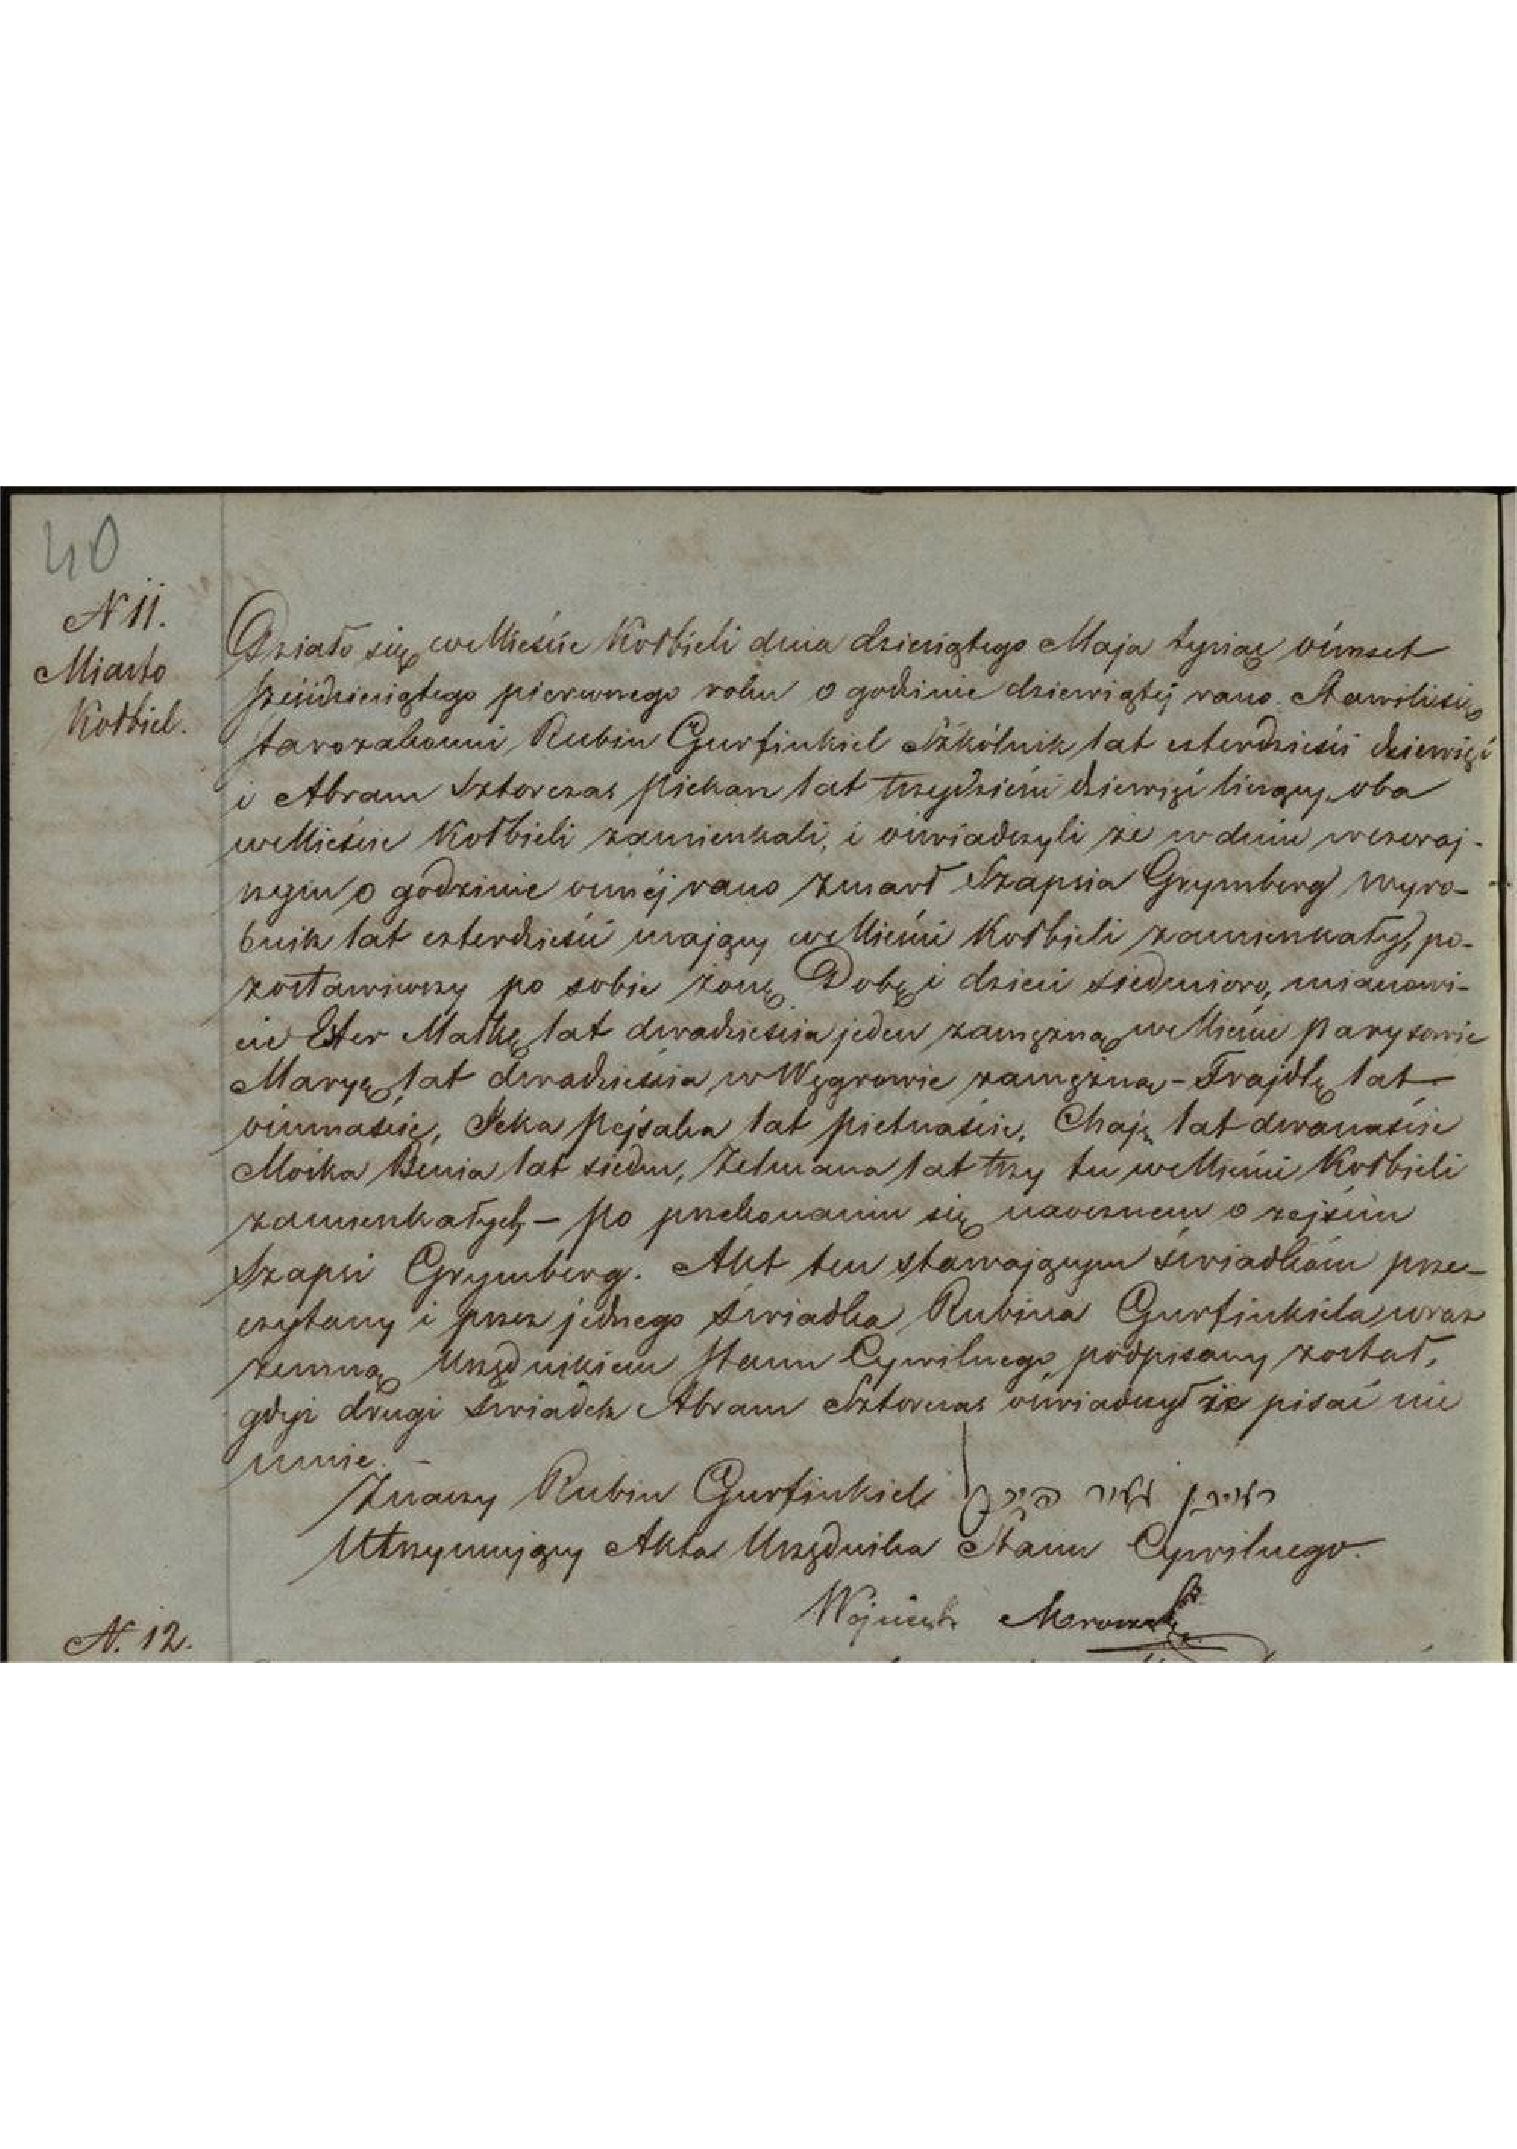 40
N 11.
Miasto
Kołbiel.
Działo się w Mieście Kołbieli dnia dziesiątego Maja tysiąc ośmset
sześćdziesiątego pierwszego roku o godzinie dziewiątej rano. Stawili się
starozakonni Rubin Gurfinkiel Szkólnik lat czterdzieści dziewięć
i Abram Sztorczas piekarz lat trzydzieści dziewięć liczący, oba
w Mieście Kołbieli zamieszkali, i oświadczyli że w dniu wczoraj-
szym o godzinie ósméj rano zmarł Szapsia Grymberg wyro-
bnik lat czterdzieści mający w Mieście Kołbieli zamieszkały, po-
zostawiwszy po sobie żonę Dobę i dzieci siedmioro, mianowi-
cie Ester Małkę lat dwadzieścia jeden zamężną w Mieście Parysowie
Maryę lat dwadzieścia w Węgrowie zamężną – Frajdłę lat
ośmnaście, Icka Pejsaka lat pietnaście, Chaję lat dwanaście
Mośka Benia lat siedm, Zelmana lat trzy tu w Mieście Kołbieli
zamieszkałych – po przekonaniu się naocznem o zejściu
Szapsi Grymberg. Akt ten stawającym świadkom prze-
czytany i przez jednego świadka Rubina Gurfinkiela wraz
zemną Urzędnikiem Stanu Cywilnego podpisany został,
gdyż drugi świadek Abram Sztorczas oświadczył że pisać nie
umie. –
Znaczy Rubin Gurfinkiel ראובן
Utrzymujący Akta Urzędnika Stanu Cywilnego.
Wojciech
N. 12.